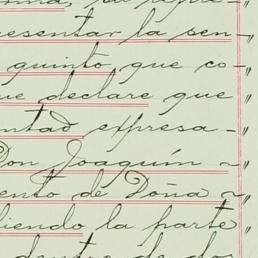 resentar la sen-
quinto que co-
ue declare que
ntad expresa-
Don Joaquím ~
ento de Doña ~
liendo la parte
dentro de do